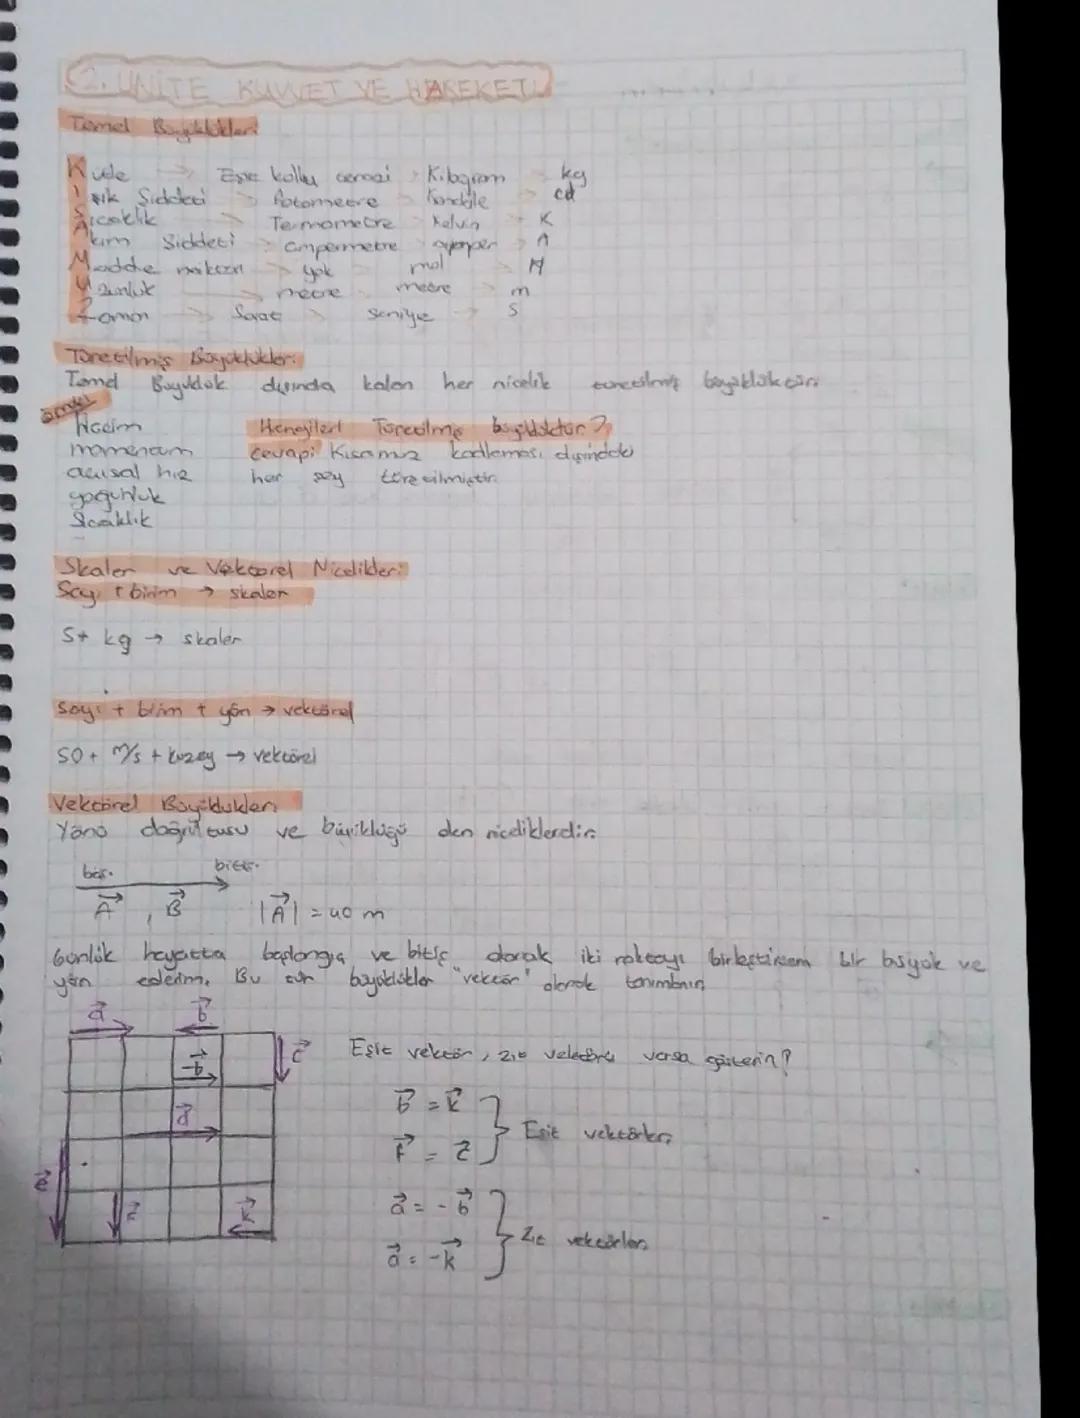 2. ÜNİTE KUVVET VE HAREKET
Temel Büyüklükler:
Kütle → Eşit kollu terazi → Kilogram → kg
Işık Şiddeti → Fotometre → Kandela → cd
Sıcaklık → Termometre → Kelvin → K
Akım Şiddeti → ampermetre → → A
Madde miktarı → yok → mol →
Uzunluk → metre → metre → m
Zaman → Saat → saniye → s
Türetilmiş Büyüklükler:
Temel Büyüklük dışında kalan her nicelik türetilmiş büyüklüktür.
örnek
Hacim
momentum
açısal hız
yoğunluk
Sıcaklık
Hangileri Türetilmiş büyüklüktür?
cevap: Kısamuz kodlaması dışındaki
her şey türetilmiştir.
Skaler ve Vektörel Nicelikler:
Sayı + birim → skaler
5+ kg → skaler
Sayı + birim + yön → vektörel
50 + m/s + kuzey → vektörel
Vektörel Büyüklükler
Yönü doğrultusu ve büyüklüğü den niceliklerdir.
baş. bitiş.
A , B |A| = 40 m
Günlük hayatta başlangıç ve bitiş olarak iki noktayı birleştirsem bir büyük ve
yön ederim. Bu tür büyüklükler "vektör" olarak tanımlanır
a b
-b c
d
e f k
Eşit vektör, zıt vektörü varsa gösterin?
b = k
f = c
Eşit vektörler
a = -b
a = -k
Zıt vektörler